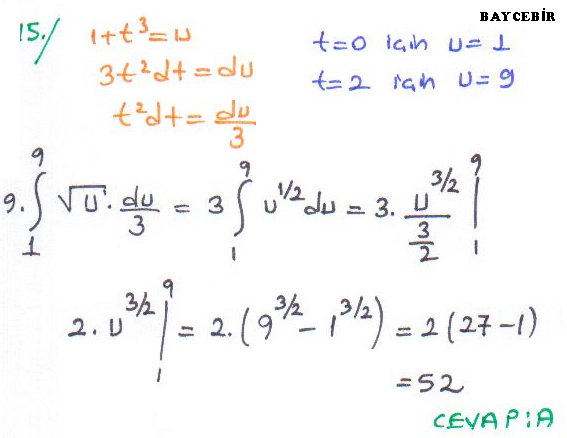 BAYCEBİR
15./ 1+t³=u
3t²dt=du
t²dt=du/3
t=0 için u=1
t=2 için u=9
9.∫₁⁹ √u.du/3 = 3∫₁⁹ u^1/2 du = 3.u^3/2/(3/2)|₁⁹
2.u^3/2|₁⁹ = 2.(9^3/2-1^3/2) = 2(27-1)
=52
CEVAP:A